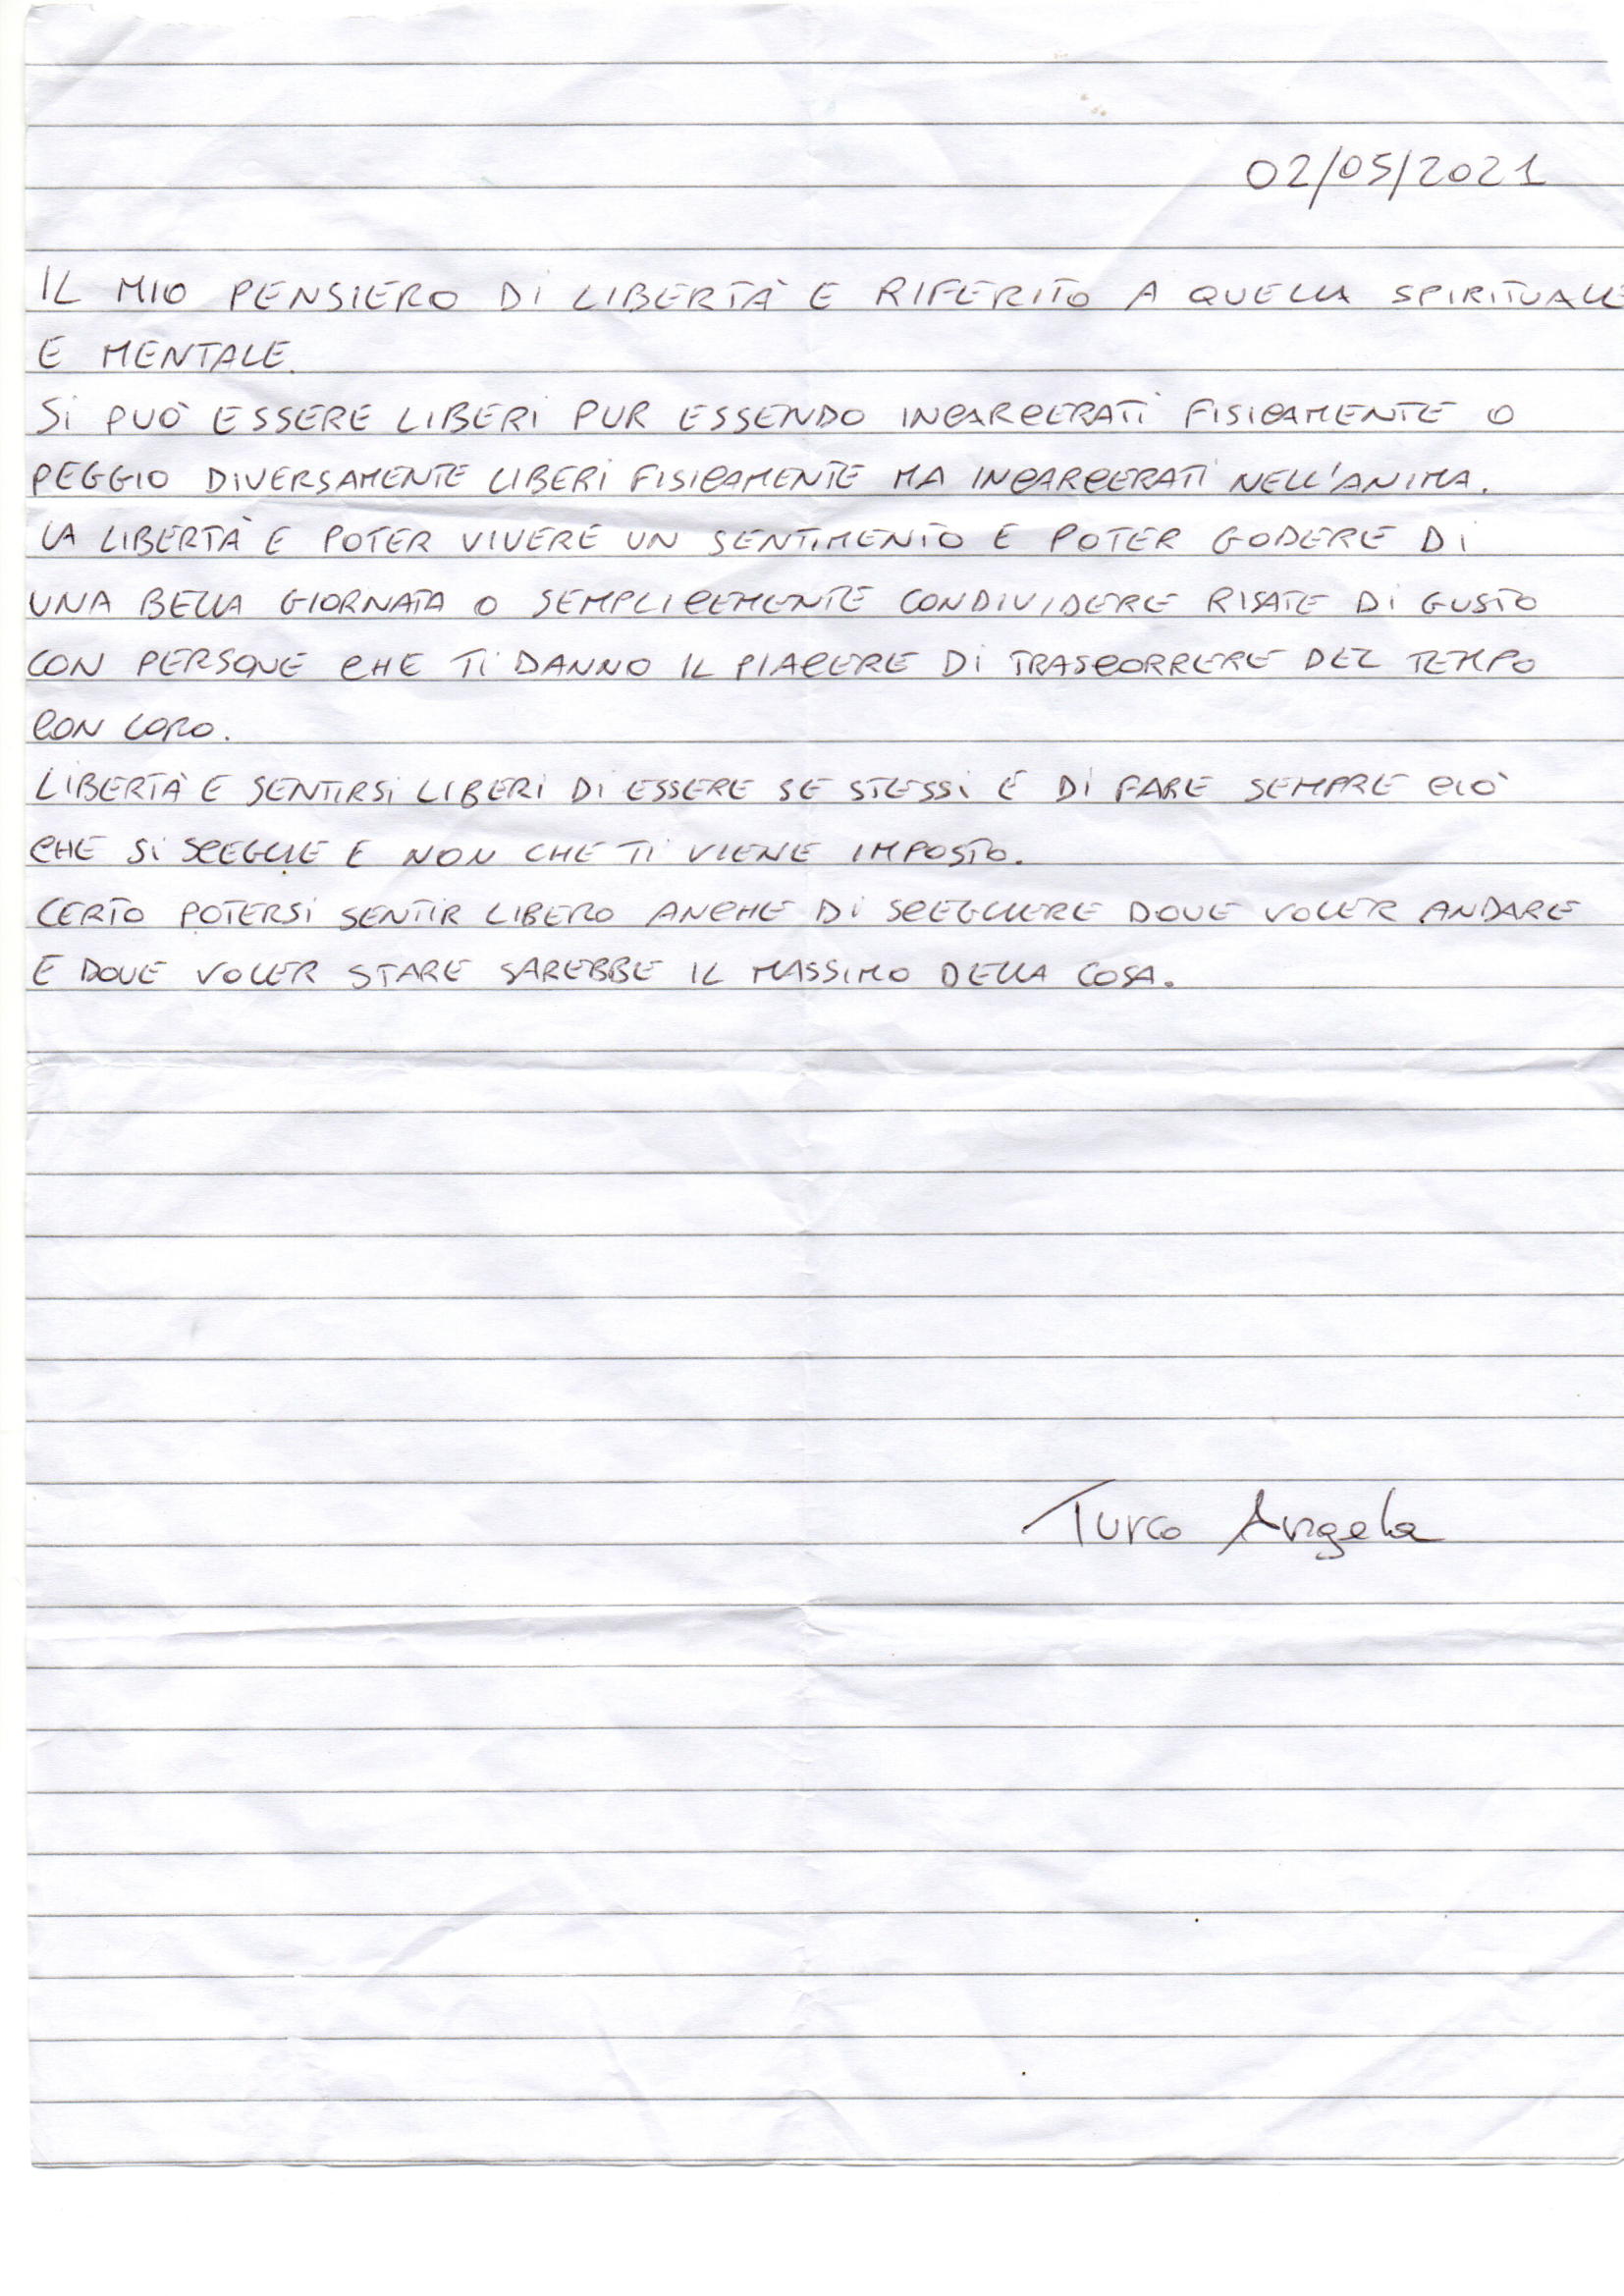 02/05/2021
IL MIO PENSIERO DI LIBERTÀ E RIFERITO A QUELLA SPIRITUALE
E MENTALE.
SI PUÒ ESSERE LIBERI PUR ESSENDO INCARCERATI FISICAMENTE O
PEGGIO DIVERSAMENTE LIBERI FISICAMENTE MA INCARCERATI NELL'ANIMA.
LA LIBERTÀ E POTER VIVERE UN SENTIMENTO E POTER GODERE DI
UNA BELLA GIORNATA O SEMPLICEMENTE CONDIVIDERE RISATE DI GUSTO
CON PERSONE CHE TI DANNO IL PIACERE DI TRASCORRERE DEL TEMPO
CON LORO.
LIBERTÀ E SENTIRSI LIBERI DI ESSERE SE STESSI E DI FARE SEMPRE CIÒ
CHE SI SCEGLIE E NON CHE TI VIENE IMPOSTO.
CERTO POTERSI SENTIR LIBERO ANCHE DI SCEGLIERE DOVE VOLER ANDARE
E DOVE VOLER STARE SAREBBE IL MASSIMO DELLA COSA.
Turco Angela